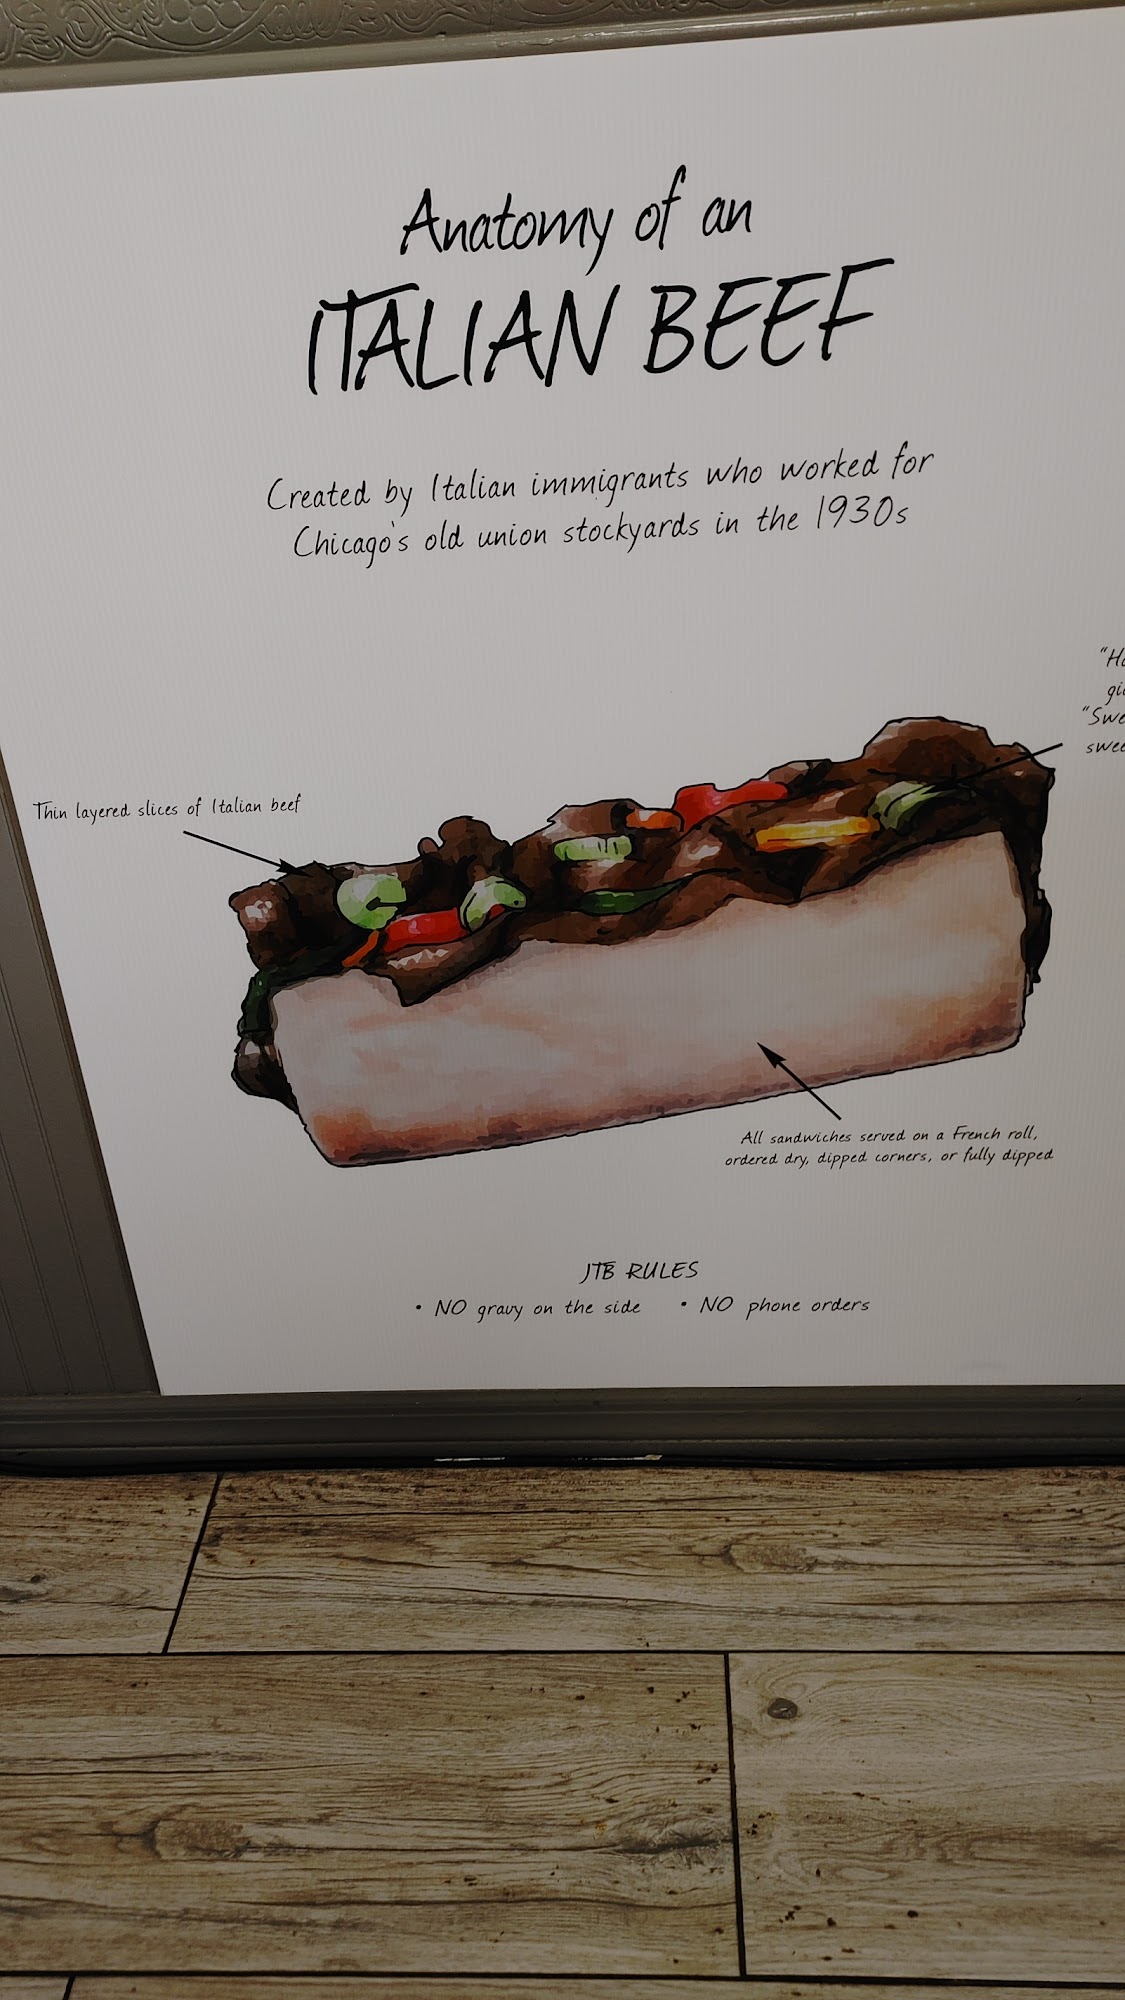 Anatomy of an
ITALIAN BEEF
Created by Italian immigrants who worked for
Chicago's old union stockyards in the 1930s
Thin layered slices of Italian beef
All sandwiches served on a French roll,
ordered dry, dipped corners, or fully dipped
JTB RULES
• NO gravy on the side • NO phone orders